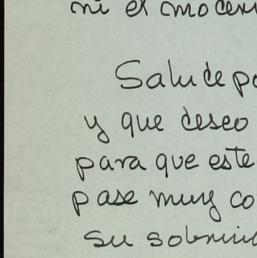 ni el mocen
Salude po
y que deseo
para que este
pase muy co
su sobrino